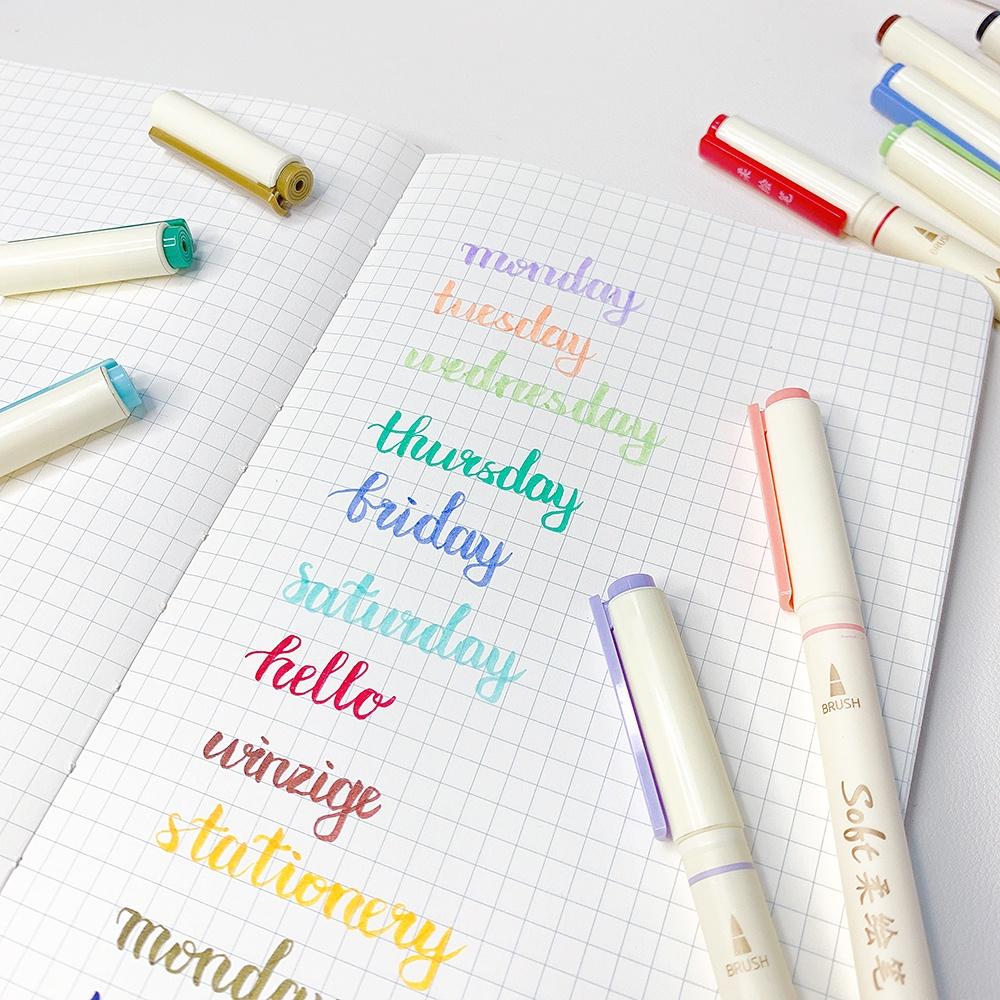 monday
tuesday
wednesday
thursday
friday
saturday
hello
winzige
stationery
monday
BRUSH
Soft 柔绘笔
BRUSH
柔绘笔
BRUSH